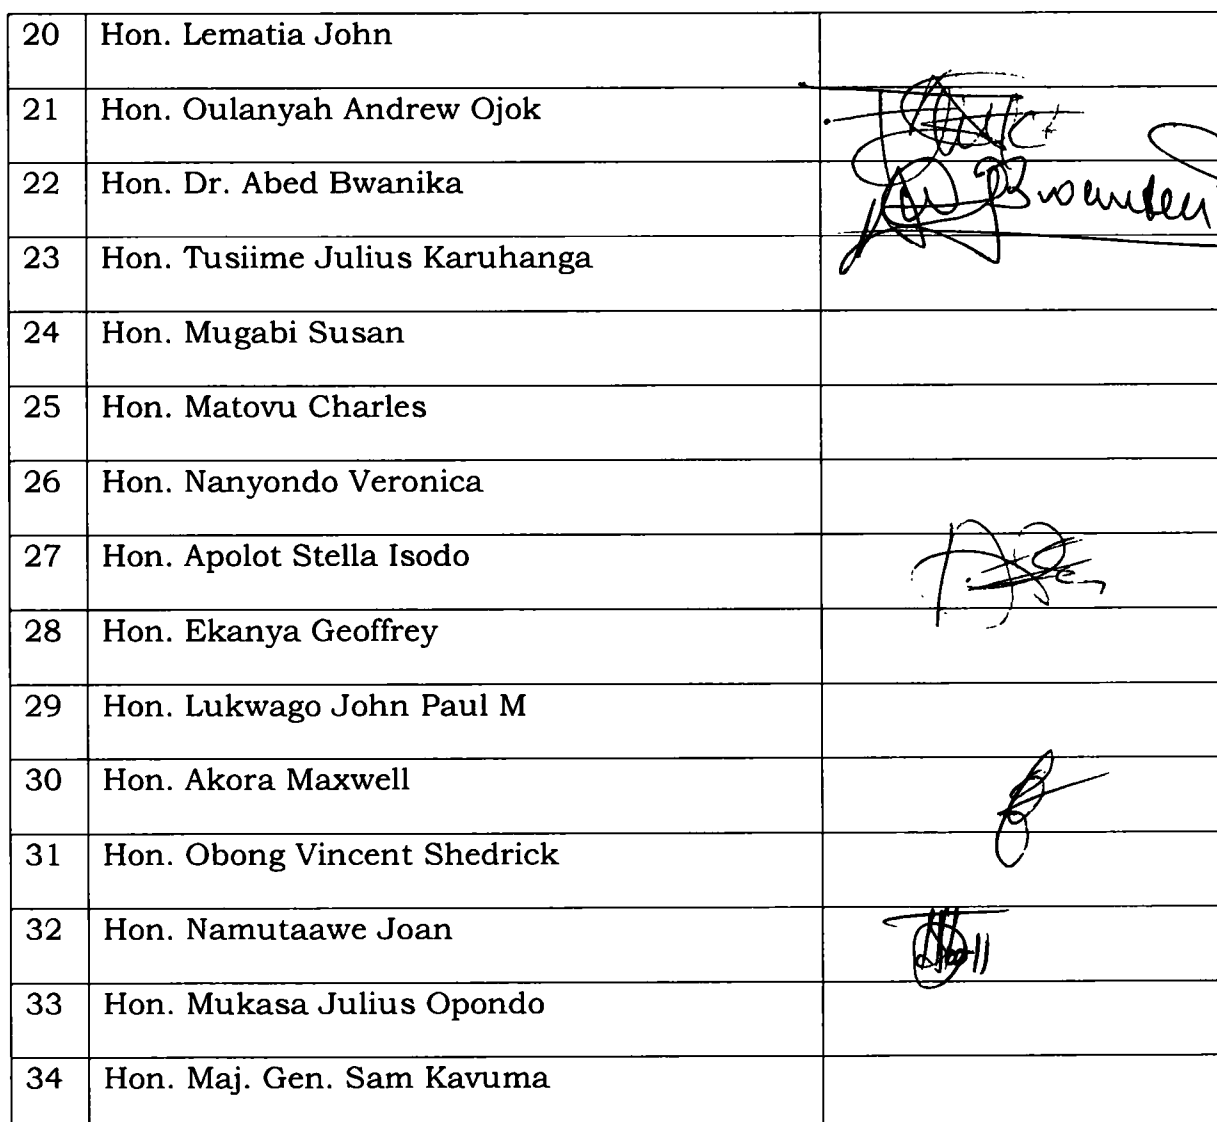 20 Hon. Lematia John
21 Hon. Oulanyah Andrew Ojok
22 Hon. Dr. Abed Bwanika
23 Hon. Tusiime Julius Karuhanga
24 Hon. Mugabi Susan
25 Hon. Matovu Charles
26 Hon. Nanyondo Veronica
27 Hon. Apolot Stella Isodo
28 Hon. Ekanya Geoffrey
29 Hon. Lukwago John Paul M
30 Hon. Akora Maxwell
31 Hon. Obong Vincent Shedrick
32 Hon. Namutaawe Joan
33 Hon. Mukasa Julius Opondo
34 Hon. Maj. Gen. Sam Kavuma